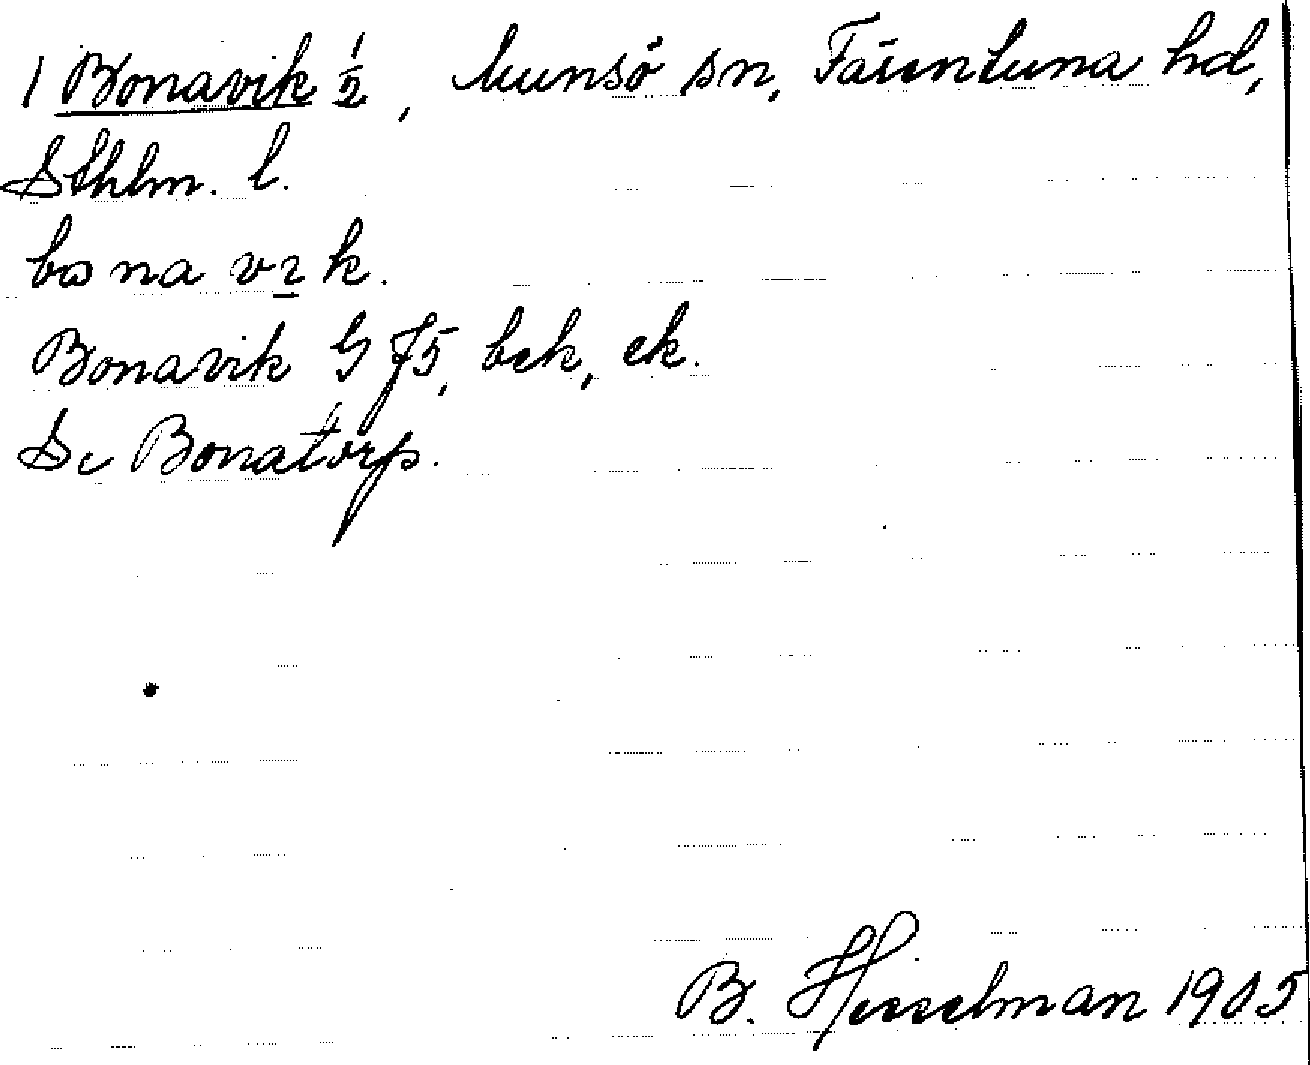 1 Bonavik ½, Munsö sn, Färentuna hd,
Sthlm. l.
bonavik.
Bonavik G J5, bek, ek.
Se Bonatorp.
B. Hesselman 1905